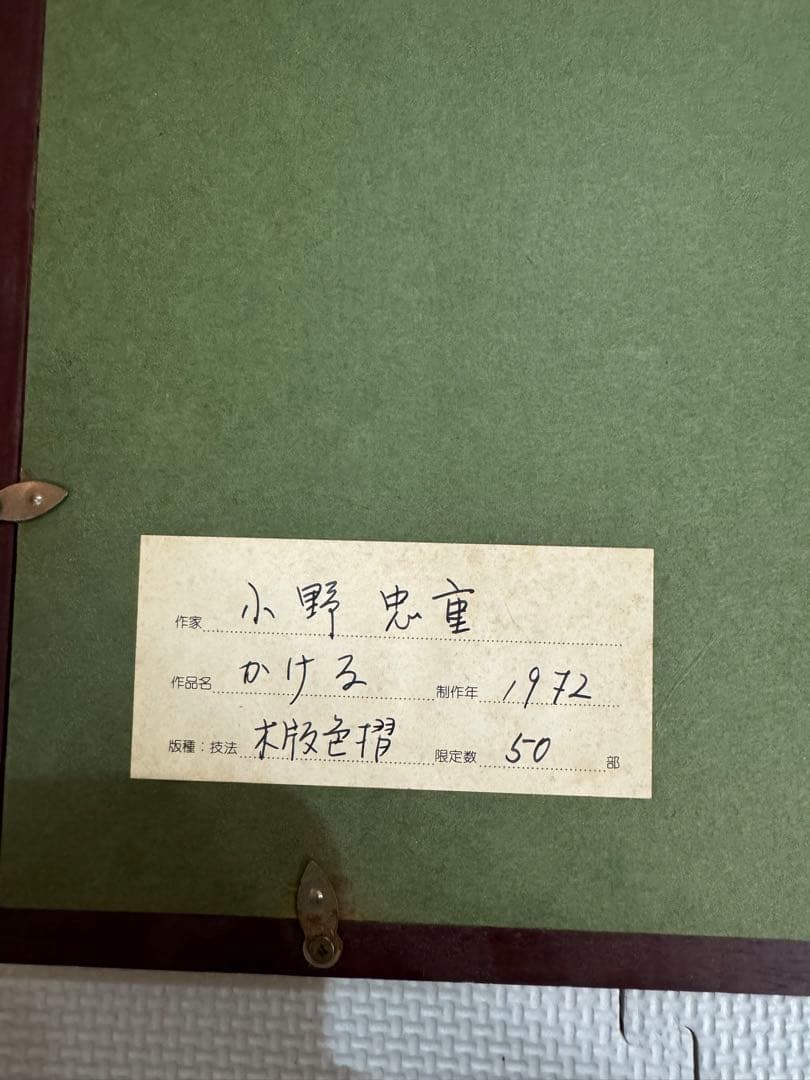 作家 小野 忠重
作品名 かける 制作年 1972
版種：技法 木版色摺 限定数 50 部